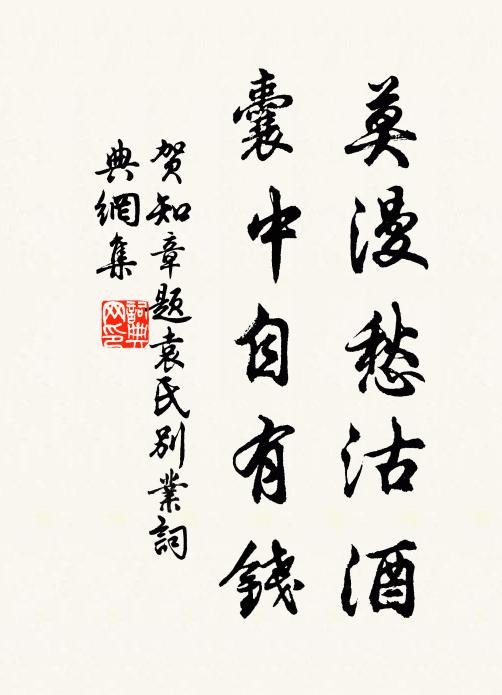 莫漫愁沽酒
囊中自有錢
贺知章题袁氏别業詞
典網集
詞典
网印